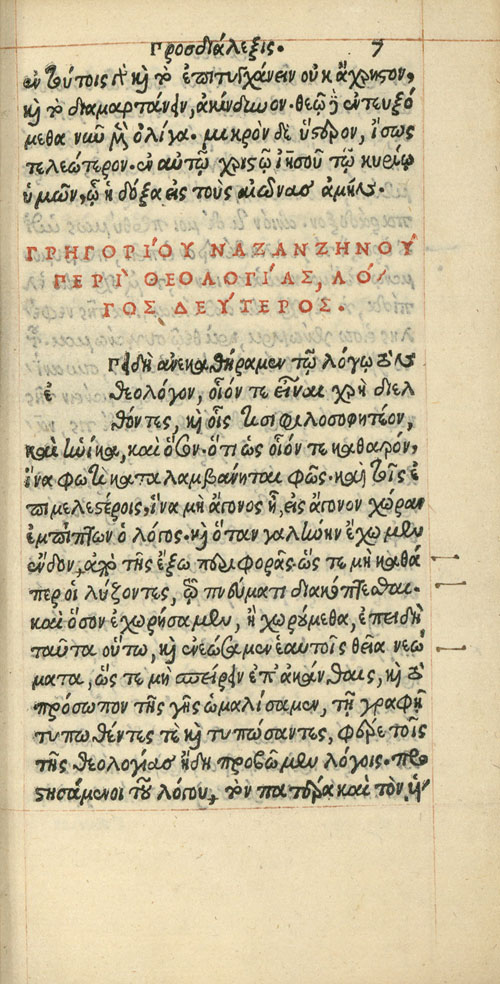 Προσδιάλεξις. 7
ἐν τούτοις γὸ κὶ τὸ ἐπιτυγχάνειν οὐκ ἄχρηστον,
κὶ τὸ διαμαρτάνειν, ἀκίνδυνον. θεῷ δὲ ἐντευξό
μεθα νῦν μὲν ὀλίγα. μικρὸν δὲ ὕστερον, ἴσως
τελεώτερον. ἐν αὐτῷ χριστῷ ἰησοῦ τῷ κυρίῳ
ἡμῶν, ᾧ ἡ δόξα εἰς τοὺς αἰῶνας ἀμήν.
ΓΡΗΓΟΡΙΟΥ ΝΑΖΑΝΖΗΝΟΥ
ΠΕΡΙ ΘΕΟΛΟΓΙΑΣ, ΛΟ/
ΓΟΣ ΔΕΥΤΕΡΟΣ.
ἀνεκαθήραμεν τῷ λόγῳ τὸν
ε θεολόγον, οἷόν τε εἶναι χρὴ διελ
θόντες, κὶ οἷς τισι φιλοσοφητέον,
καὶ ἡνίκα, καὶ ὅσον. ὅτι ὡς οἷόν τε καθαρόν,
ἵνα φωτὶ καταλαμβάνηται φῶς. καὶ τοῖς ἐ
πιμελεστέροις, ἵνα μὴ ἄγονος ᾖ, εἰς ἄγονον χώραν
ἐμπίπτων ὁ λόγος. κὶ ὅταν γαλήνην ἔχωμεν
ἔνδον, ἀπὸ τῆς ἔξω περιφορᾶς. ὥς τε μὴ καθά
περ οἱ λύζοντες, τῷ πνεύματι διακόπτεσθαι.
καὶ ὅσον ἐχωρήσαμεν, ἢ χωρούμεθα, ἐπειδὴ
ταῦτα οὕτω, κὶ ἐνεώσαμεν ἑαυτοῖς θεῖα νεώ
ματα, ὥς τε μὴ σπείρειν ἐπ' ἀκάνθαις, κὶ τὸ
πρόσωπον τῆς γῆς ὡμαλίσαμεν, τῇ γραφῇ
τυπωθέντες τὲ κὶ τυπώσαντες, φέρε τοῖς
τῆς θεολογίας ἤδη προβῶμεν λόγοις. προ
στησάμενοι τοῦ λόγου, τὸν πατέρα καὶ τὸν ὑι